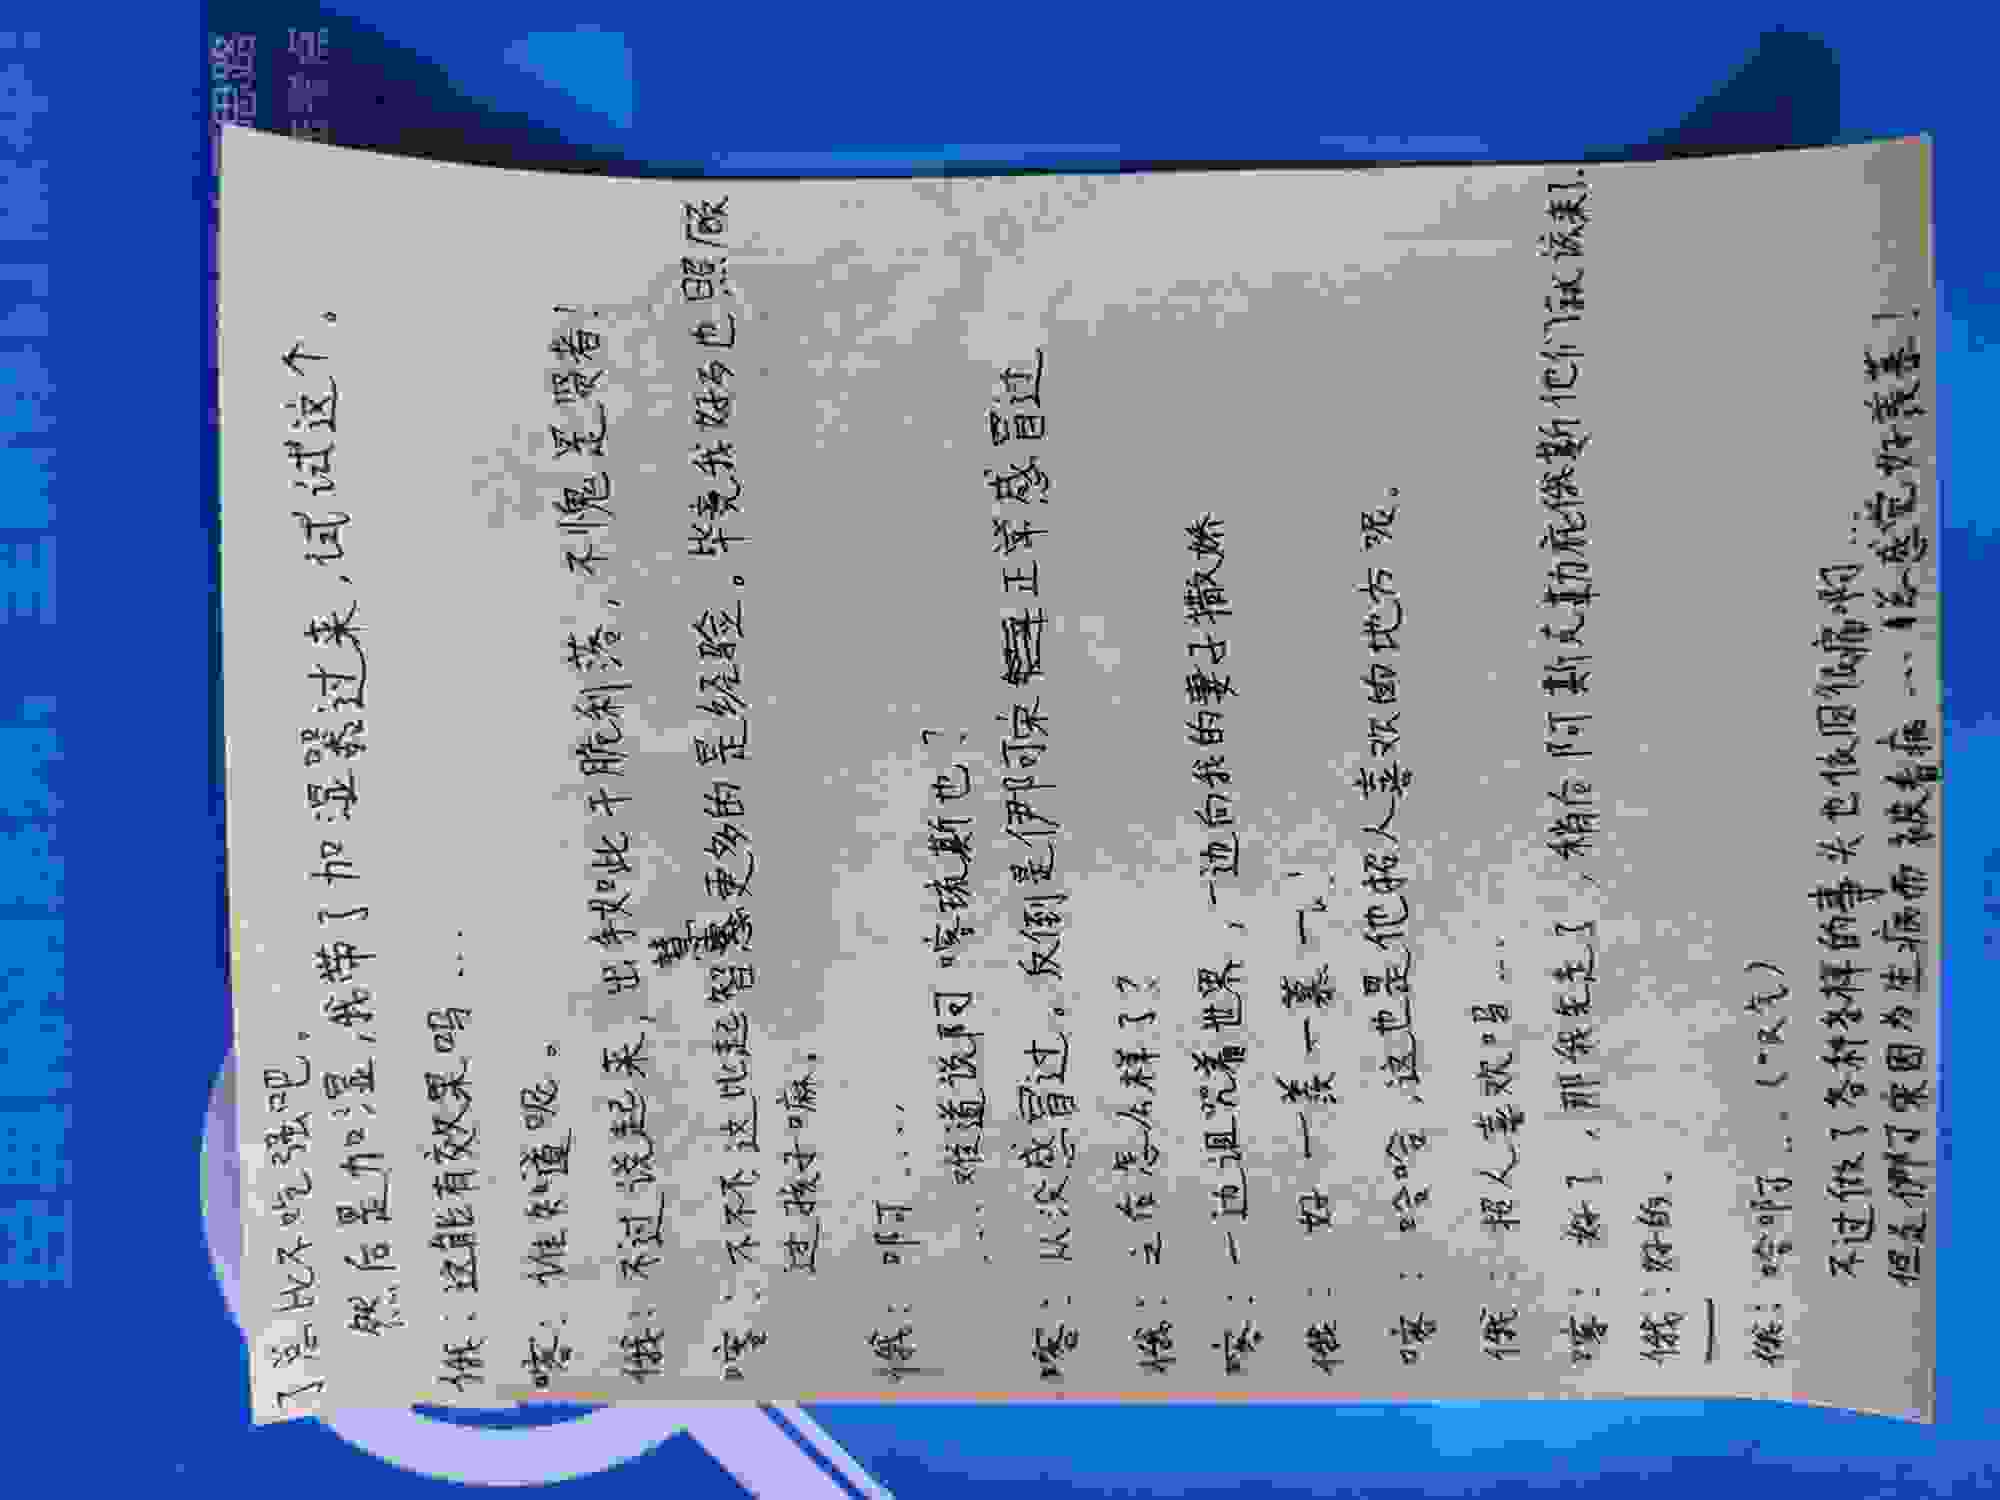 了总比不吃强吧。
然后是加湿,我带了加湿器过来,试试这个。
俄:这能有效果吗…
喀:谁知道呢。
俄:不过说起来,出手如此干脆利落,不愧是贤者!
喀:不不不 这比起智慧更多的是经验。毕竟我好歹也照顾
过孩子嘛。
俄:啊……
…难道说阿喀琉斯也?
喀:从没感冒过。反倒是伊阿宋 正常感冒过
俄:之后怎么样了?
喀:一边诅咒着世界,一边向我的妻子撒娇
俄:好一羡一慕一…
喀:哈哈,这也是他招人喜欢的地方呢。
俄:招人喜欢吗…
喀:好了,那我先走了,稍后阿斯克勒庇俄斯他们就该来了.
俄:好的.
俄:哈啊…(叹气)
不过做了各种各样的事头也依旧很痛啊…
但是伊阿宋因为生病而被看……总感觉好羡慕!
2023